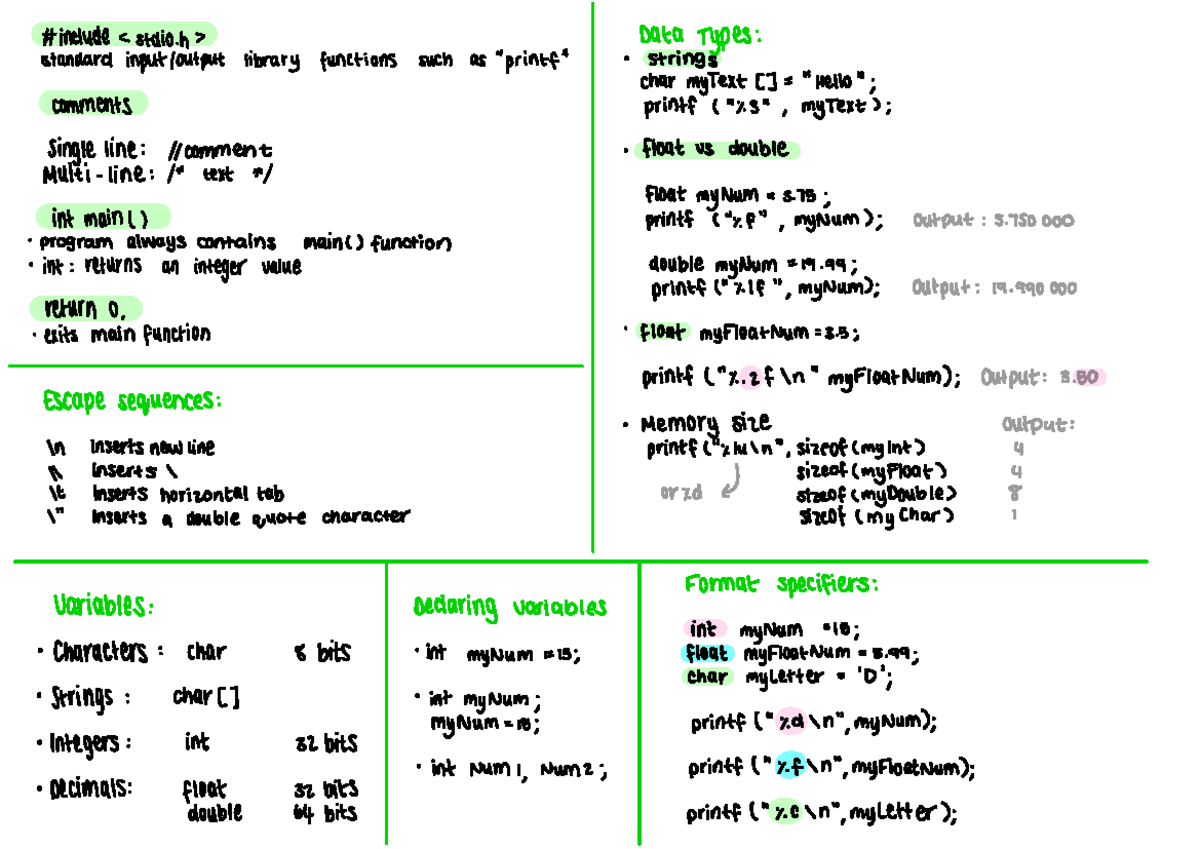 #include < stdio.h >
standard input/output library functions such as "printf"
comments
Single line: //comment
Multi-line: /* text */
int main()
• program always contains main() function
• int: returns an integer value
return 0;
• exits main function
Escape sequences:
\n Inserts new line
\\ Inserts \
\t Inserts horizontal tab
\" Inserts a double quote character
Data Types:
• strings
char myText [] = "Hello";
printf ("%s", myText);
• float vs double
float myNum = 5.75;
printf ("%f", myNum); Output: 5.750 000
double myNum = 19.99;
printf ("%lf", myNum); Output: 19.990 000
• float myFloatNum = 3.5;
printf ("%.2f \n" myFloatNum); Output: 3.50
• Memory size Output:
printf ("%lu\n", sizeof(myInt) 4
sizeof(myFloat) 4
or %d sizeof(myDouble) 8
sizeof(myChar) 1
Variables:
• Characters: char 8 bits
• Strings: char[]
• Integers: int 32 bits
• Decimals: float 32 bits
double 64 bits
Declaring variables
• int myNum = 15;
• int myNum;
myNum = 15;
• int Num1, Num2;
Format specifiers:
int myNum = 15;
float myFloatNum = 5.99;
char myLetter = 'D';
printf ("%d\n", myNum);
printf ("%f\n", myFloatNum);
printf ("%c\n", myLetter);